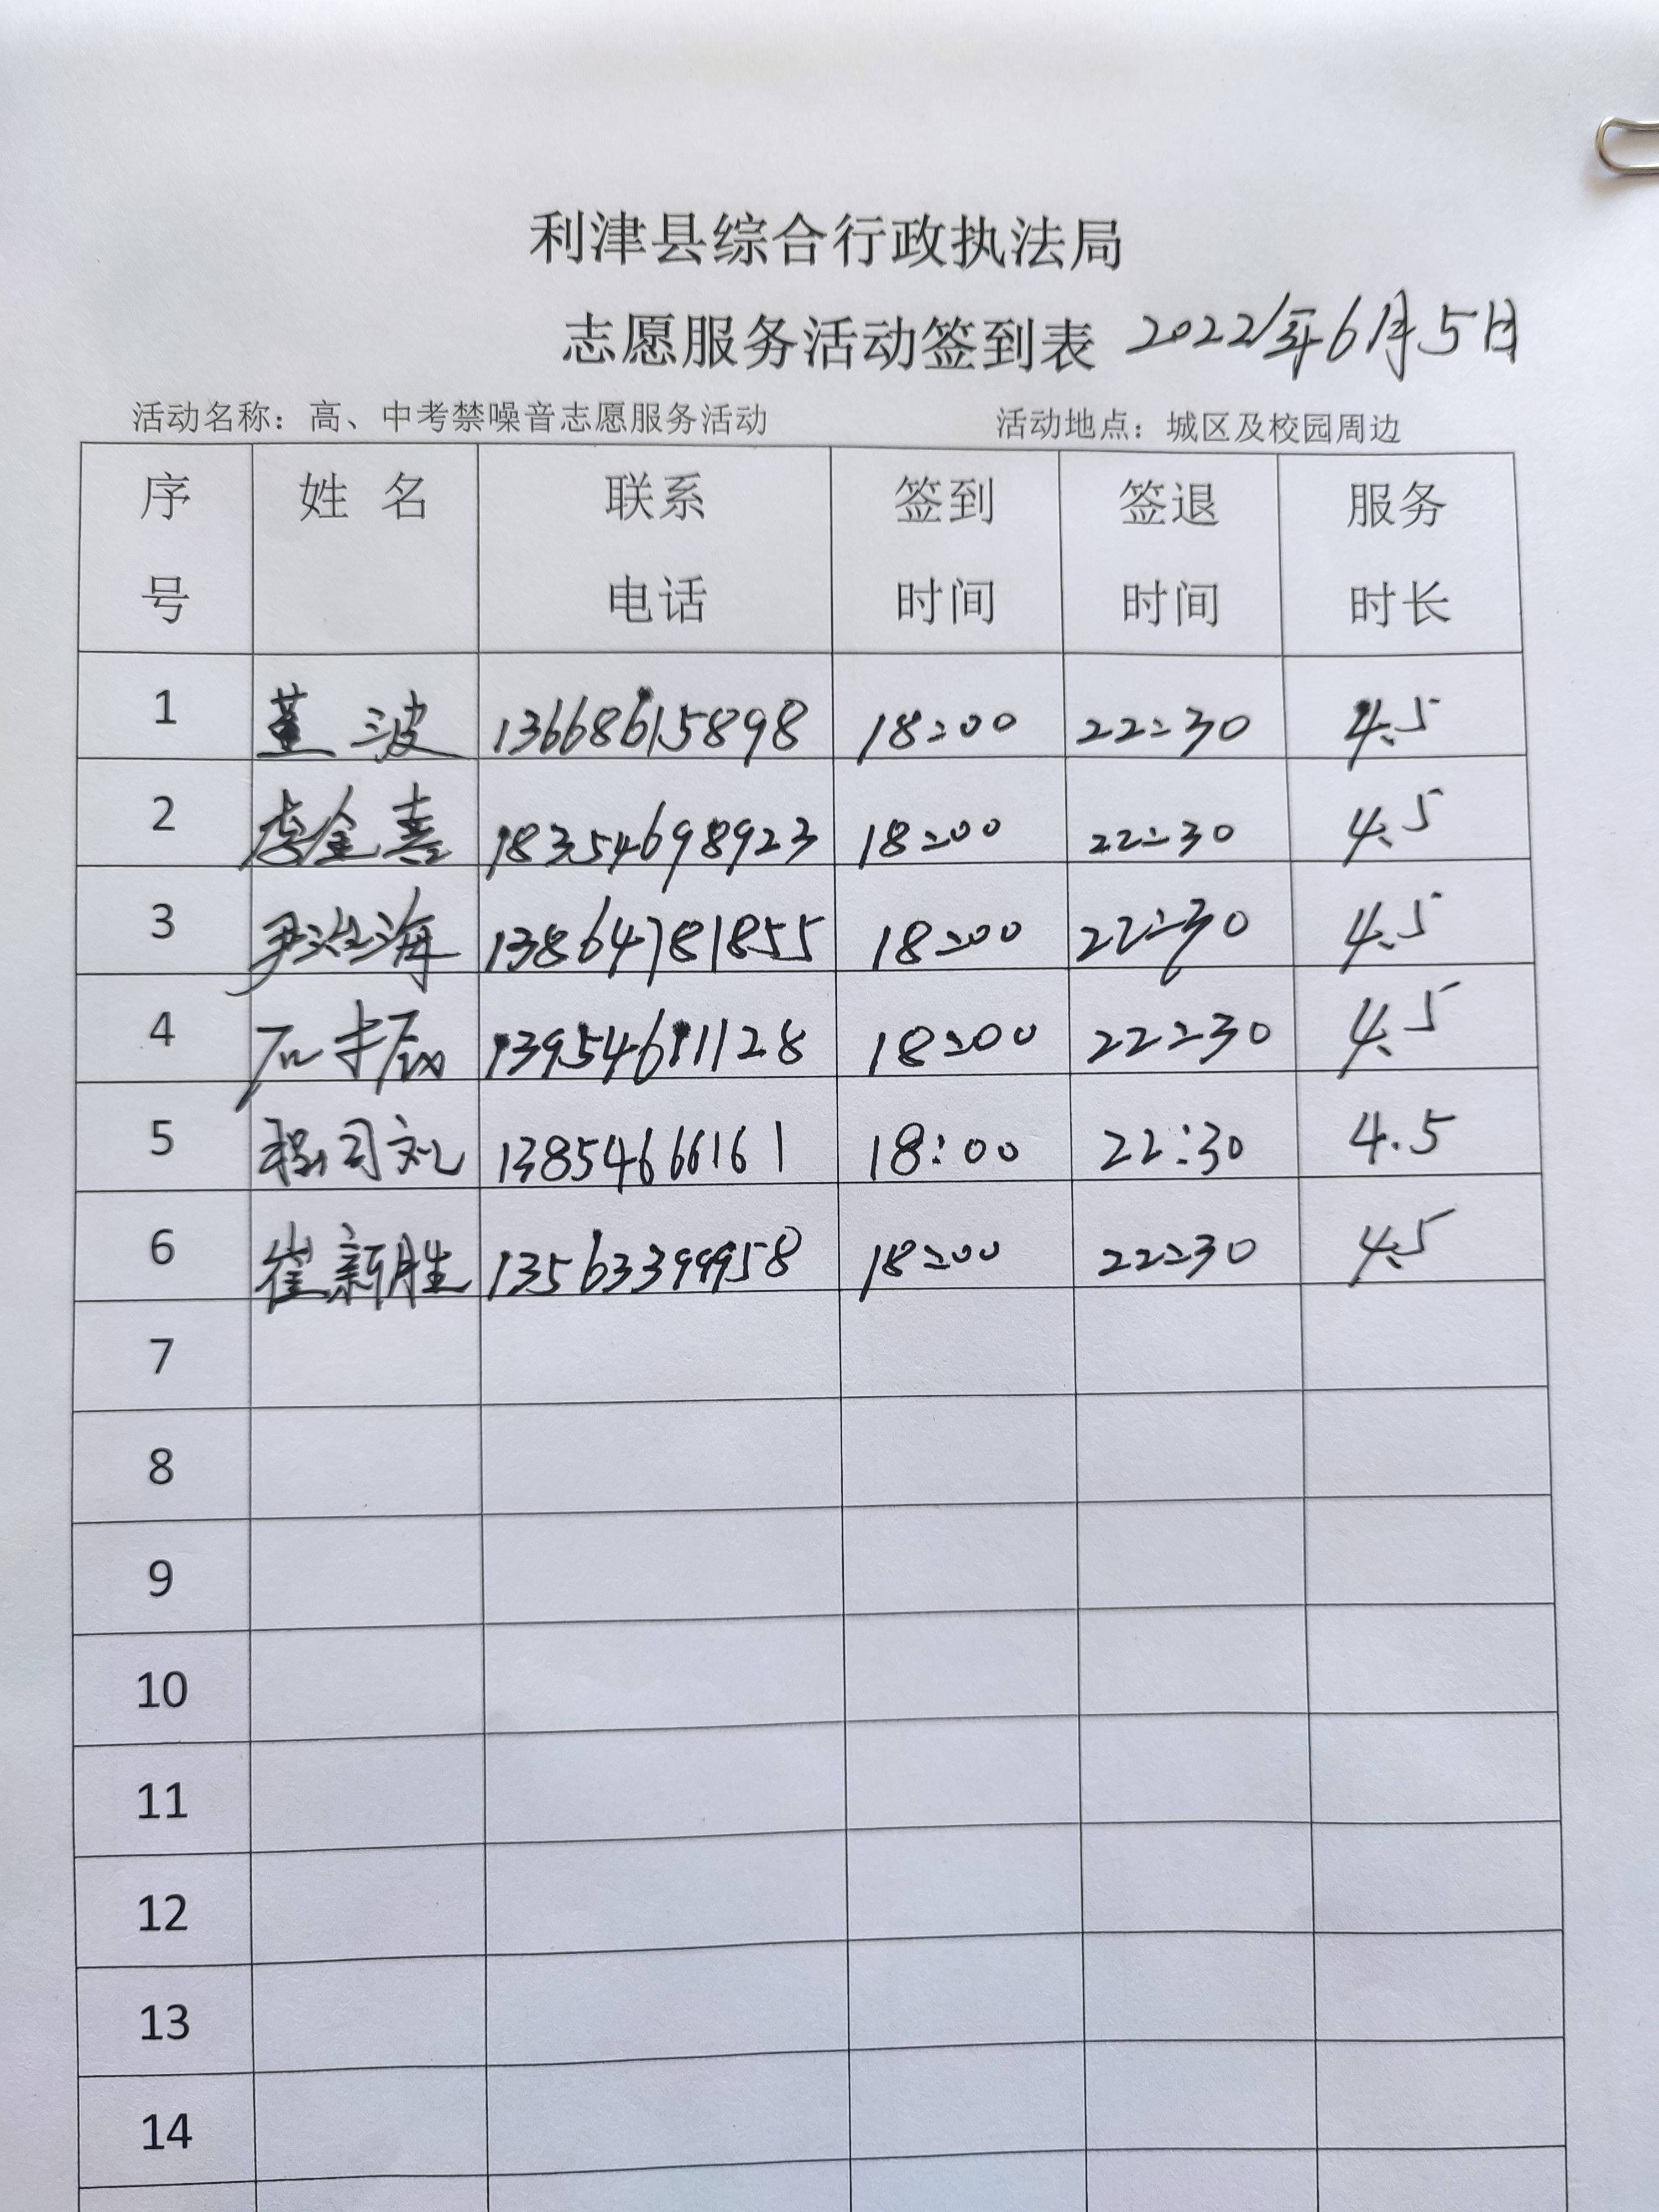 利津县综合行政执法局
志愿服务活动签到表 2022年6月5日
活动名称：高、中考禁噪音志愿服务活动 活动地点：城区及校园周边
序号 姓名 联系电话 签到时间 签退时间 服务时长
1 董波 13668615898 18:00 22:30 4.5
2 金喜 18354698923 18:00 22:30 4.5
3 尹海 13864781855 18:00 22:30 4.5
4 石 13954611128 18:00 22:30 4.5
5 程司 13854666161 18:00 22:30 4.5
6 崔新胜 13563399958 18:00 22:30 4.5
7
8
9
10
11
12
13
14